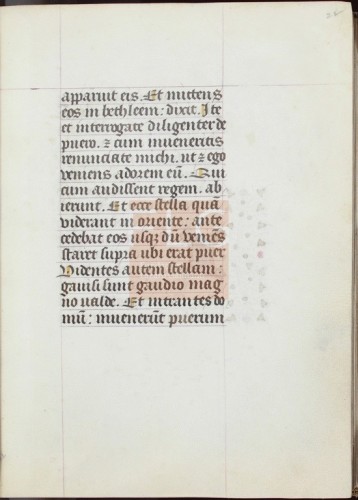 apparuit eis. Et mittens
eos in bethleem: dixit. Ite
et interrogate diligenter de
puero. ⁊ cum inueneritis
renunciate michi. ut ⁊ ego
veniens adorem eū. Qui
cum audissent regem. ab
ierunt. Et ecce stella quā
viderant in oriente: ante
cedebat eos usqꝫ dū veniēs
staret supra ubi erat puer
Videntes autem stellam:
gauisi sunt gaudio mag
no valde. Et intrantes do
mū: inuenerūt puerum